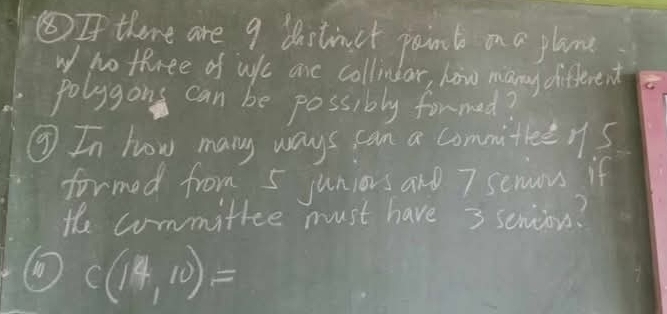 ⑧ If there are 9 distinct points on a plane
w/ no three of w/c are collinear, how many different
polygons can be possibly formed?
⑨ In how many ways can a committee of 5
formed from 5 juniors and 7 seniors if
the committee must have 3 seniors?
⑩ C(14, 10) =